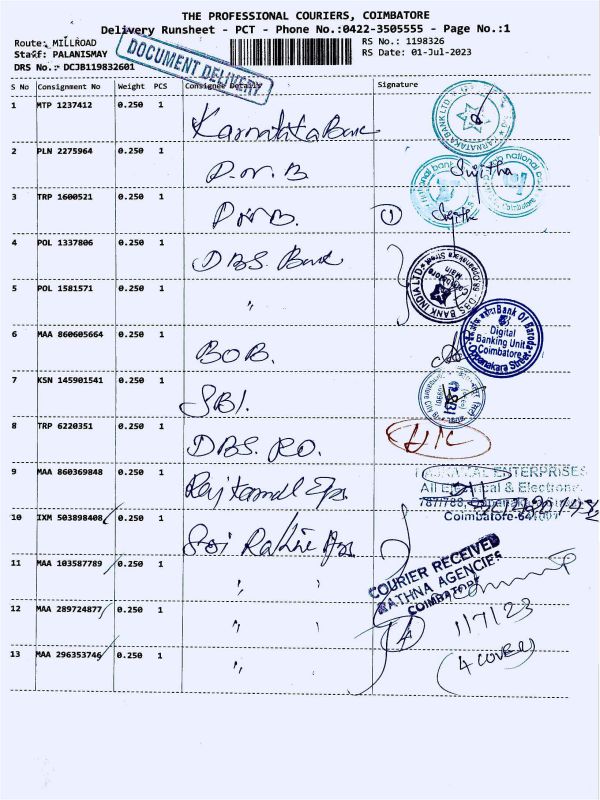 THE PROFESSIONAL COURIERS, COIMBATORE
Delivery Runsheet - PCT - Phone No.:0422-3505555 - Page No.:1
Route: MILLROAD
RS No.: 1198326
Staff: PALANISMAY
RS Date: 01-Jul-2023
DRS No.: DCJB119832601
DOCUMENT DELIVERY
S No Consignment No Weight PCS Consignee Details Signature
1 MTP 1237412 0.250 1 Karnataka Bank
KARNATAKA BANK LTD
2 PLN 2275964 0.250 1 P.N.B Sujitha
national bank
3 TRP 1600521 0.250 1 PNB. 1 Sujitha
4 POL 1337806 0.250 1 DBS Bank
DBS BANK INDIA LTD
Coimbatore
Main
5 POL 1581571 0.250 1 "
6 MAA 860605664 0.250 1 BOB.
Bank Of Baroda
Digital
Banking Unit
Coimbatore
Oppanakara Street
7 KSN 145901541 0.250 1 SBI.
SBI
8 TRP 6220351 0.250 1 DBS. RO.
9 MAA 860369848 0.250 1 Rajkamal Eps.
ENTERPRISES
All Electrical & Electronic
787/788,
Coimbatore-641001
10 IXM 503898408 0.250 1 Sri Rathna Ags
11 MAA 103587789 0.250 1 " "
COURIER RECEIVED
RATHNA AGENCIES
COIMBATORE
12 MAA 289724877 0.250 1 " " 4 1/7/23
13 MAA 296353746 0.250 1 " (4 covers)